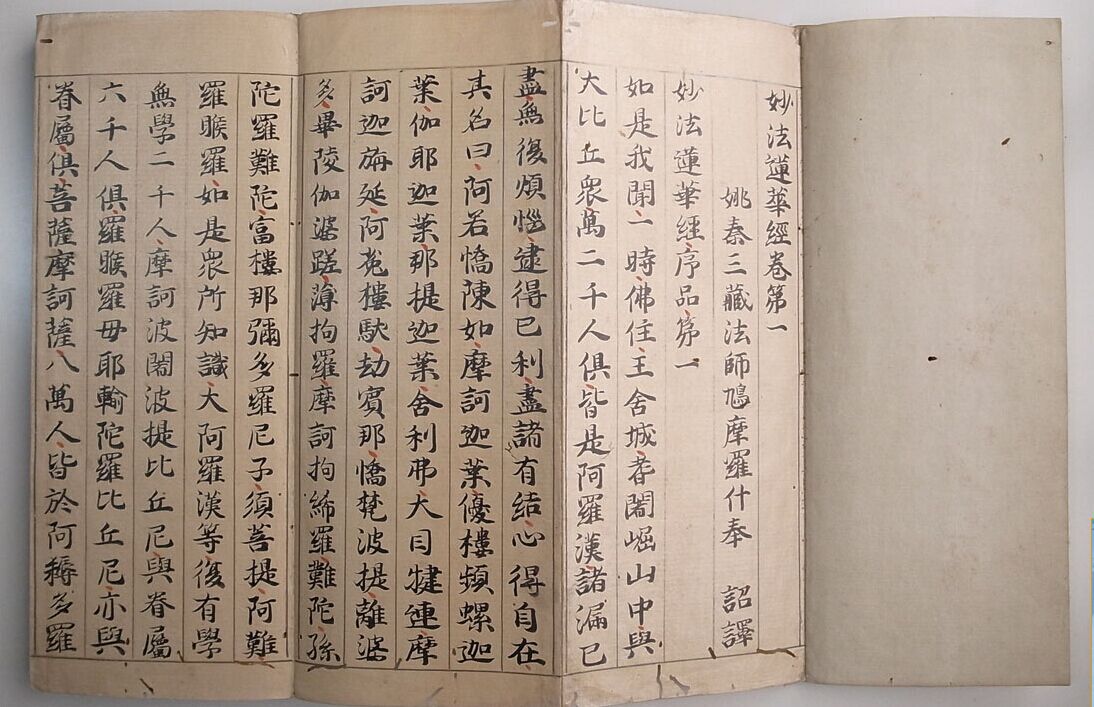 妙法蓮華經卷第一
姚秦三藏法師鳩摩羅什奉　詔譯
妙法蓮華經序品第一
如是我聞一時佛住王舍城耆闍崛山中與
大比丘衆萬二千人俱皆是阿羅漢諸漏已
盡無復煩惱逮得已利盡諸有結心得自在
其名曰阿若憍陳如摩訶迦葉優樓頻螺迦
葉伽耶迦葉那提迦葉舍利弗大目犍連摩
訶迦旃延阿㝹樓馱劫賓那憍梵波提離婆
多畢陵伽婆蹉薄拘羅摩訶拘絺羅難陀孫
陀羅難陀富樓那彌多羅尼子須菩提阿難
羅睺羅如是衆所知識大阿羅漢等復有學
無學二千人摩訶波闍波提比丘尼與眷屬
六千人俱羅睺羅母耶輸陀羅比丘尼亦與
眷屬俱菩薩摩訶薩八萬人皆於阿耨多羅